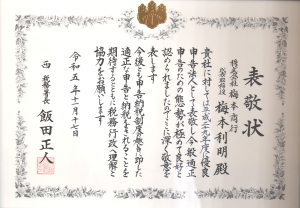 表敬状
株式会社 梅本商行
代表取締役 梅本利明殿
貴社に対しては平成二九年度に優良
申告法人として表敬し今般適正
申告のための態勢が極めて良好と
認められましたのでここに深く敬意を
表します
今後も申告納税制度の趣旨に即した
適正な申告と納税をされることを
期待するとともに税務行政へ理解と
協力をお願いします
令和五年十一月十七日
西税務署長 飯田正人